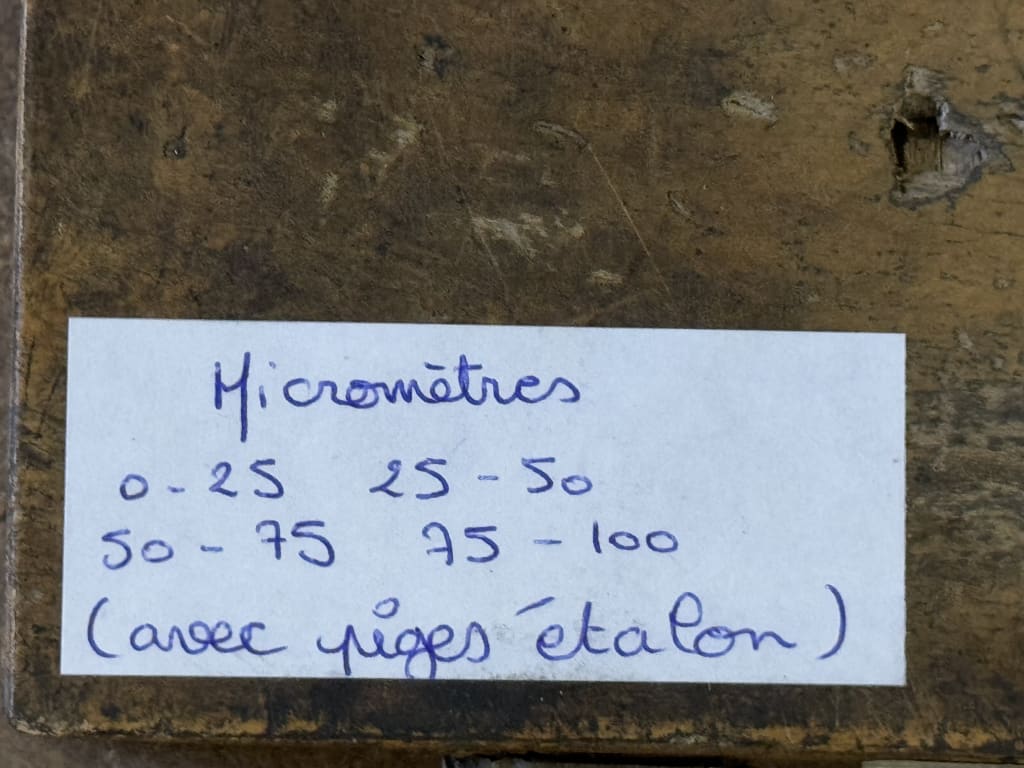 Micromètres
0 - 25 25 - 50
50 - 75 75 - 100
(avec piges étalon)